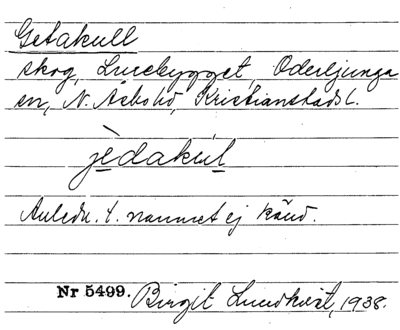 Getakull
skog, Lurebygget, Oderljunga
sn, N. Åsbo hd, Kristianstads l.
jèdakúl
Anledn. t. namnet ej känd.
Nr 5499. Birgit Lundkvist, 1938.